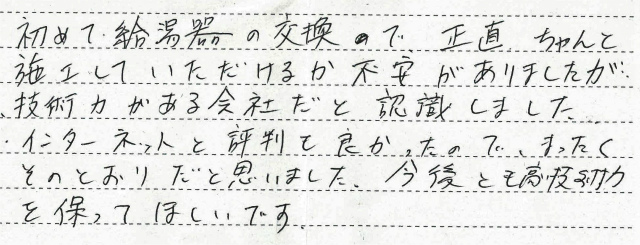 初めて給湯器の交換ので、正直ちゃんと
施工していただけるか不安がありましたが、
技術力がある会社だと認識しました。
インターネットと評判も良かったので、まったく
そのとおりだと思いました。今後とも高技術力
を保ってほしいです。